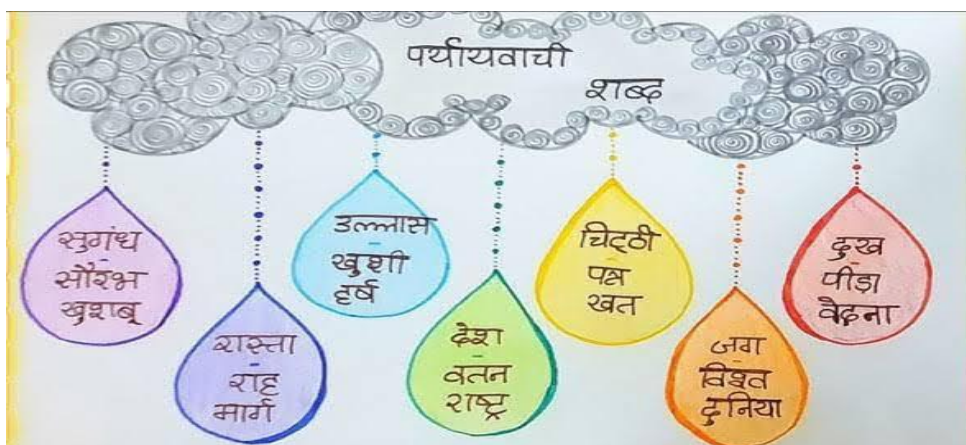 पर्यायवाची
शब्द
सुगंध
-
सौरभ
खुशबू
रास्ता
-
राह
मार्ग
उल्लास
-
खुशी
हर्ष
देश
-
वतन
राष्ट्र
चिट्ठी
-
पत्र
खत
जग
-
विश्व
दुनिया
दुख
-
पीड़ा
वेदना